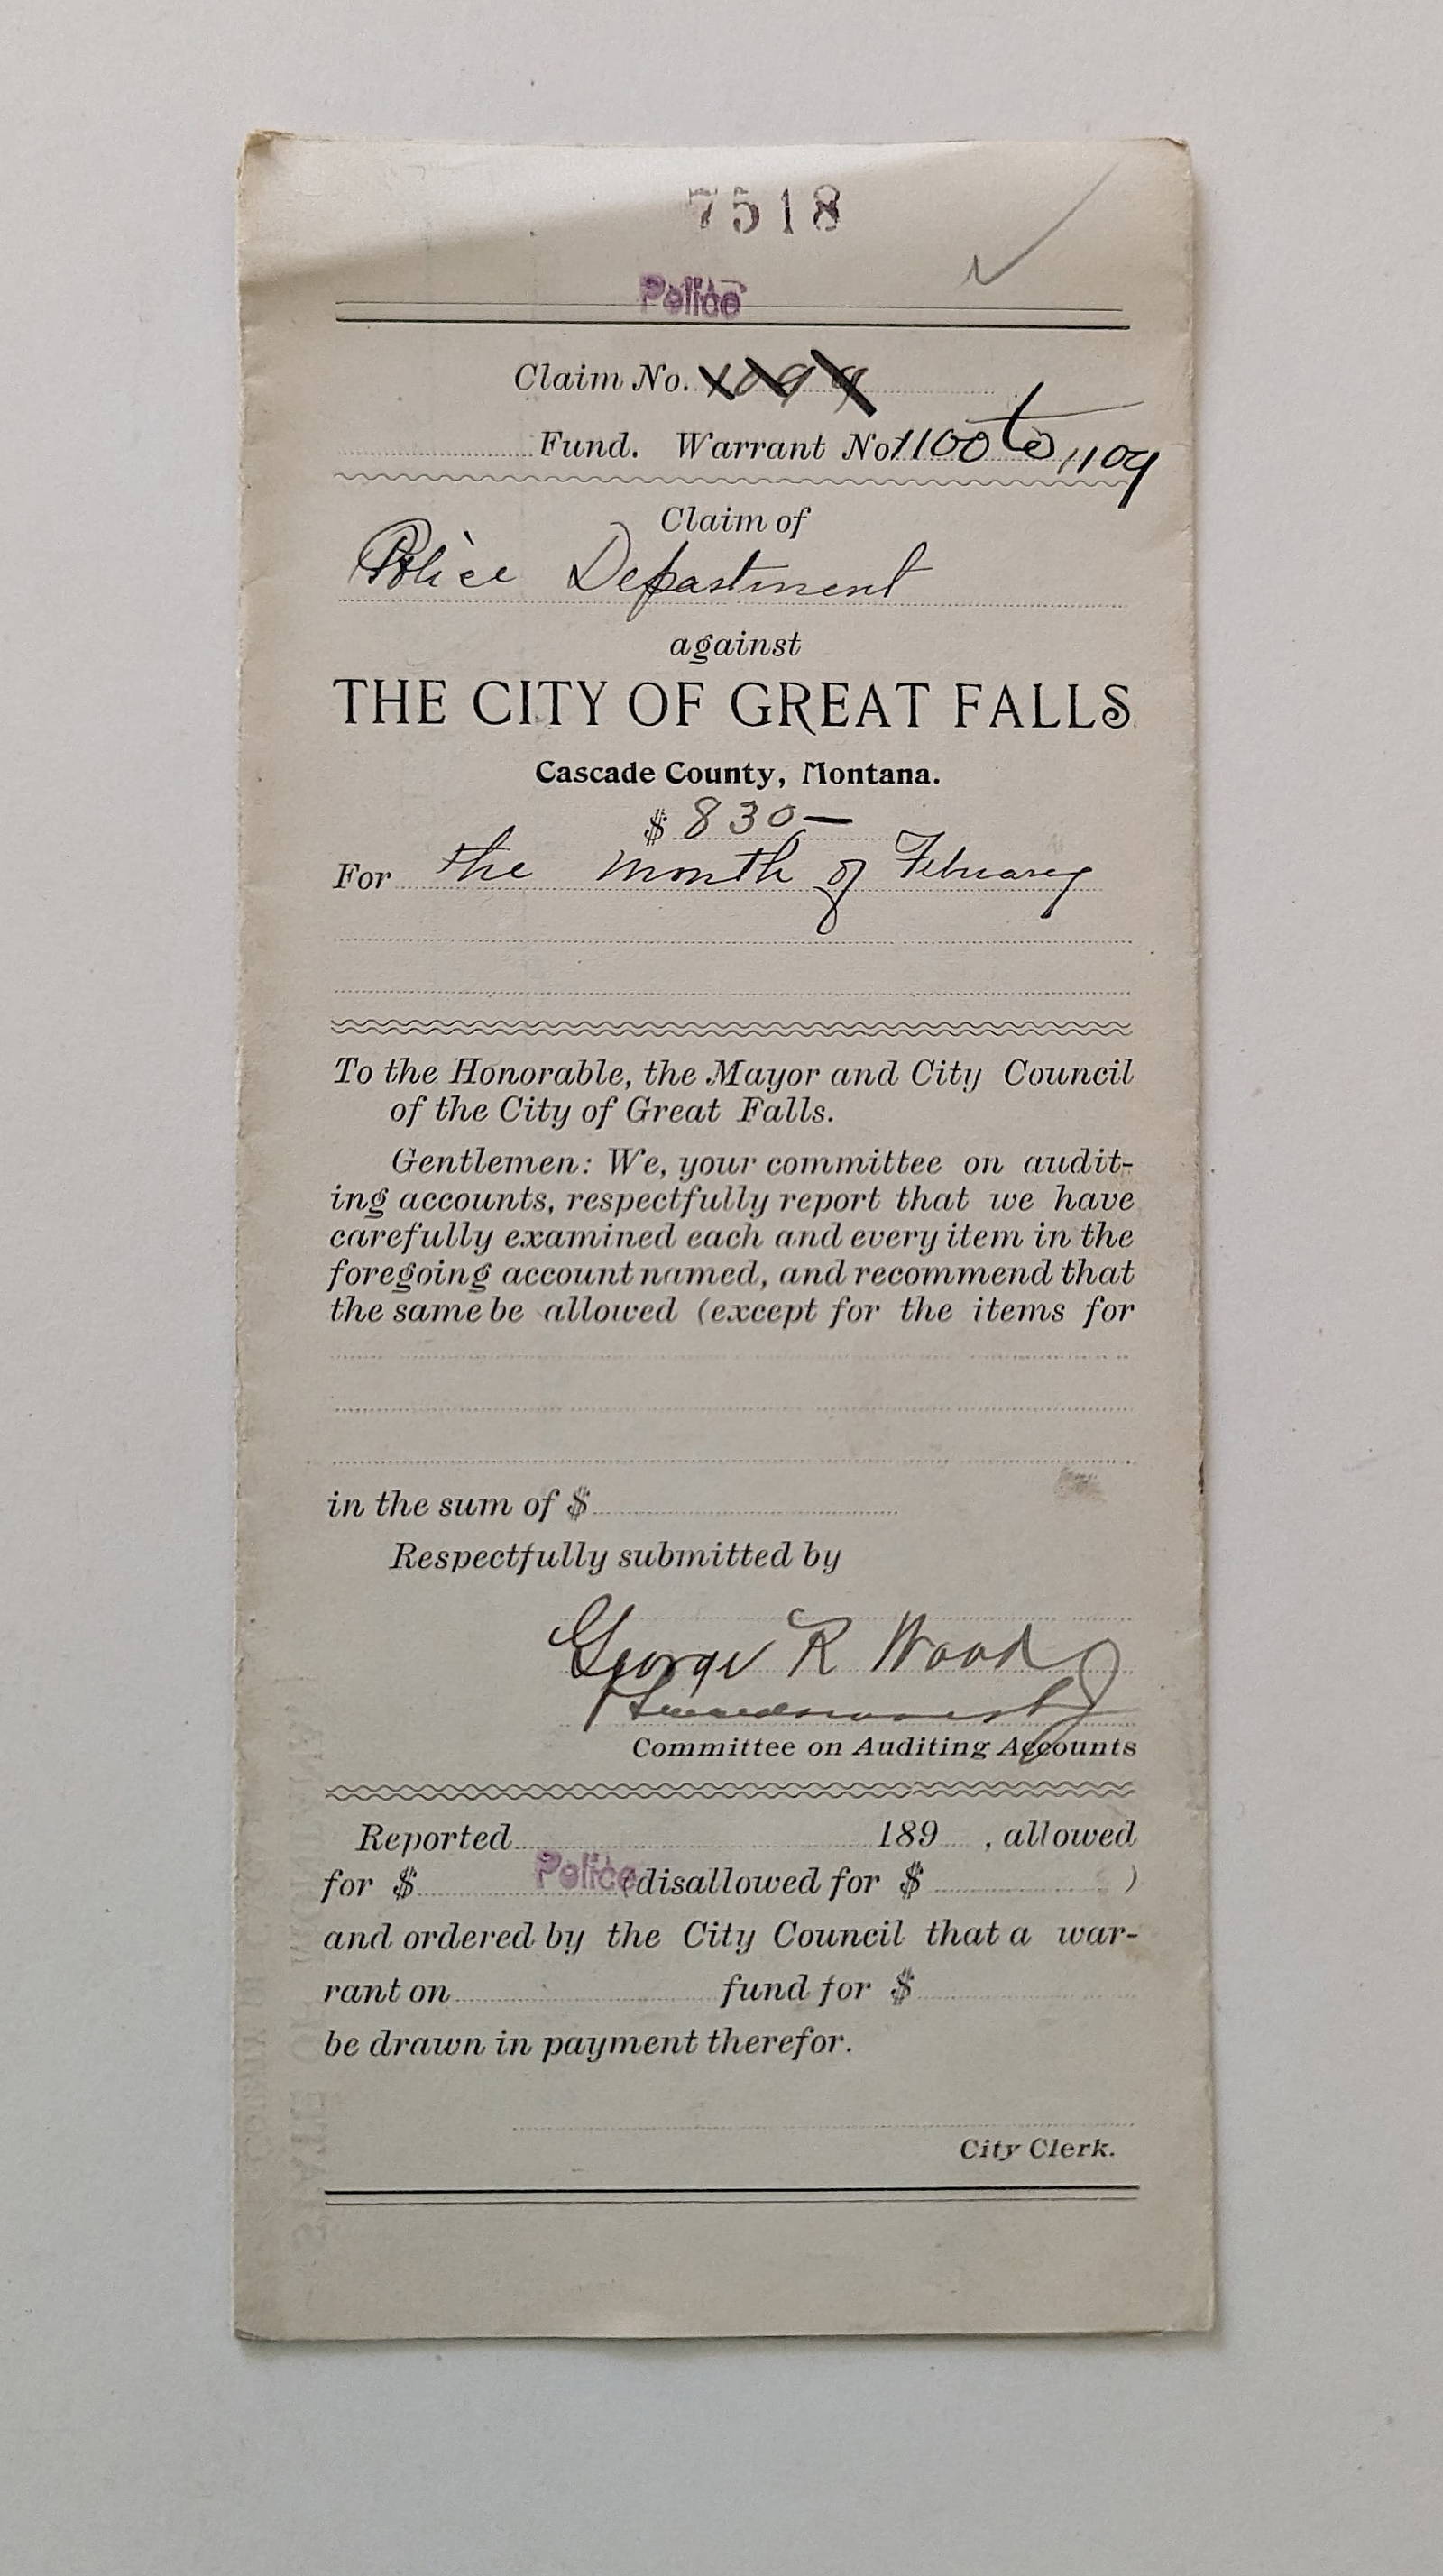 7518
Police
Claim No. 1099
Fund. Warrant No 1100 to 1109
Claim of
Police Department
against
THE CITY OF GREAT FALLS
Cascade County, Montana.
$ 830—
For the month of February
To the Honorable, the Mayor and City Council
of the City of Great Falls.
Gentlemen: We, your committee on audit-
ing accounts, respectfully report that we have
carefully examined each and every item in the
foregoing account named, and recommend that
the same be allowed (except for the items for
in the sum of $
Respectfully submitted by
George R Woods
Committee on Auditing Accounts
Reported 189 , allowed
for $ Police (disallowed for $ )
and ordered by the City Council that a war-
rant on fund for $
be drawn in payment therefor.
City Clerk.